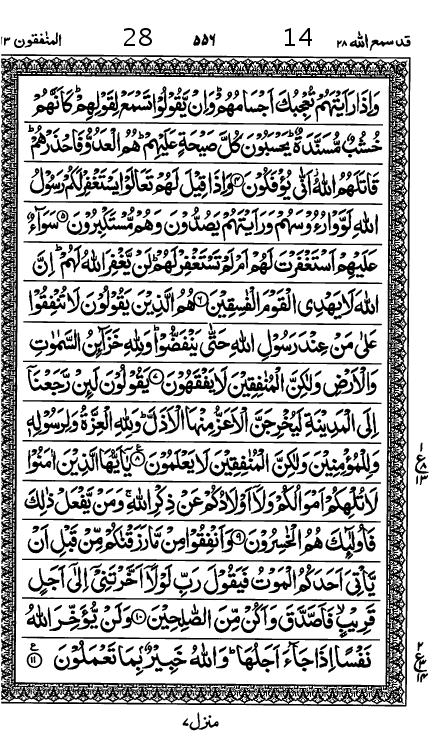 قد سمع الله ٢٨ 14 ٥٥٦ 28 المنٰفقون ٦٣
وَاِذَا رَاَيْتَهُمْ تُعْجِبُكَ اَجْسَامُهُمْ ؕ وَاِنْ يَّقُوْلُوْا تَسْمَعْ لِقَوْلِهِمْ ؕ كَاَنَّهُمْ
خُشُبٌ مُّسَنَّدَةٌ ؕ يَحْسَبُوْنَ كُلَّ صَيْحَةٍ عَلَيْهِمْ ؕ هُمُ الْعَدُوُّ فَاحْذَرْهُمْ ؕ
قَاتَلَهُمُ اللّٰهُ ؗ اَنّٰى يُؤْفَكُوْنَ ﴿۴﴾ وَاِذَا قِيْلَ لَهُمْ تَعَالَوْا يَسْتَغْفِرْ لَكُمْ رَسُوْلُ
اللّٰهِ لَوَّوْا رُءُوْسَهُمْ وَرَاَيْتَهُمْ يَصُدُّوْنَ وَهُمْ مُّسْتَكْبِرُوْنَ ﴿۵﴾ سَوَآءٌ
عَلَيْهِمْ اَسْتَغْفَرْتَ لَهُمْ اَمْ لَمْ تَسْتَغْفِرْ لَهُمْ ؕ لَنْ يَّغْفِرَ اللّٰهُ لَهُمْ ؕ اِنَّ
اللّٰهَ لَا يَهْدِى الْقَوْمَ الْفٰسِقِيْنَ ﴿۶﴾ هُمُ الَّذِيْنَ يَقُوْلُوْنَ لَا تُنْفِقُوْا
عَلٰى مَنْ عِنْدَ رَسُوْلِ اللّٰهِ حَتّٰى يَنْفَضُّوْا ؕ وَلِلّٰهِ خَزَآئِنُ السَّمٰوٰتِ
وَالْاَرْضِ وَلٰكِنَّ الْمُنٰفِقِيْنَ لَا يَفْقَهُوْنَ ﴿۷﴾ يَقُوْلُوْنَ لَئِنْ رَّجَعْنَاۤ
اِلَى الْمَدِيْنَةِ لَيُخْرِجَنَّ الْاَعَزُّ مِنْهَا الْاَذَلَّ ؕ وَلِلّٰهِ الْعِزَّةُ وَلِرَسُوْلِهٖ
وَلِلْمُؤْمِنِيْنَ وَلٰكِنَّ الْمُنٰفِقِيْنَ لَا يَعْلَمُوْنَ ﴿۸﴾ يٰۤاَيُّهَا الَّذِيْنَ اٰمَنُوْا
لَا تُلْهِكُمْ اَمْوَالُكُمْ وَلَاۤ اَوْلَادُكُمْ عَنْ ذِكْرِ اللّٰهِ ۚ وَمَنْ يَّفْعَلْ ذٰلِكَ
فَاُولٰٓئِكَ هُمُ الْخٰسِرُوْنَ ﴿۹﴾ وَاَنْفِقُوْا مِنْ مَّا رَزَقْنٰكُمْ مِّنْ قَبْلِ اَنْ
يَّاْتِىَ اَحَدَكُمُ الْمَوْتُ فَيَقُوْلَ رَبِّ لَوْلَاۤ اَخَّرْتَنِىْۤ اِلٰٓى اَجَلٍ
قَرِيْبٍ ۙ فَاَصَّدَّقَ وَاَكُنْ مِّنَ الصّٰلِحِيْنَ ﴿۱۰﴾ وَلَنْ يُّؤَخِّرَ اللّٰهُ
نَفْسًا اِذَا جَآءَ اَجَلُهَا ؕ وَاللّٰهُ خَبِيْرٌۢ بِمَا تَعْمَلُوْنَ ﴿۱۱﴾
١ ع ٨ ١٣
٢ ع ٣ ١٤
منزل ٧